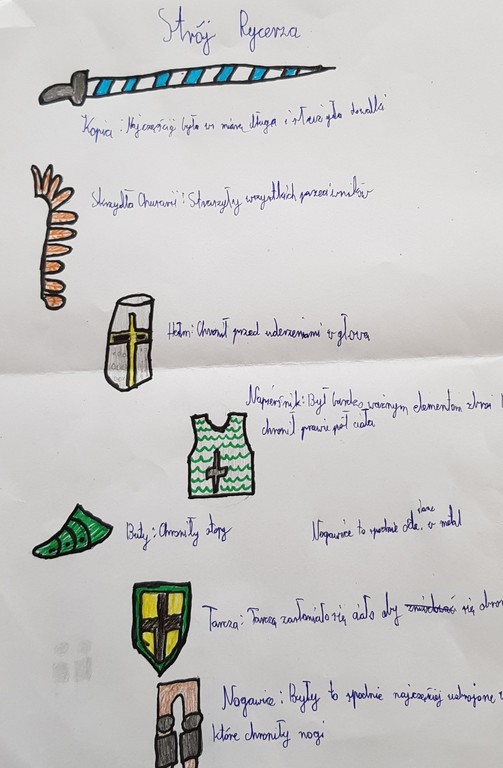 Strój Rycerza
Kopia: Najczęściej była w miarę długa i służyła do walki
Skrzydła Chusarii: Straszyły wszystkich przeciwników
Hełm: Chronił przed uderzeniami w głową
Napierśnik: Był bardzo ważnym elementem zbroi
chronił prawie pół ciała
Buty: Chroniły stopy
Nogawice to spodnie w metal
Tarcza: Tarczą zasłaniało się ciało aby się
Nogawice: Były to spodnie najczęściej
które chroniły nogi